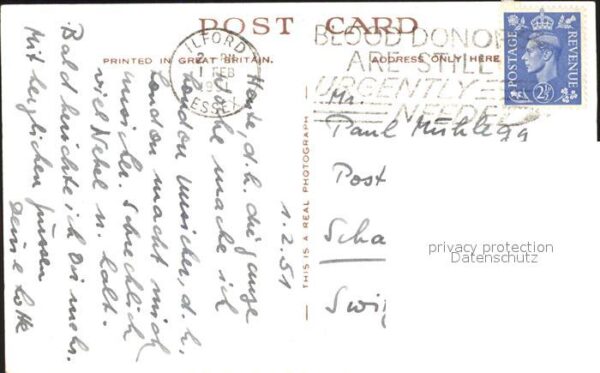 POST CARD
PRINTED IN GREAT BRITAIN.
ADDRESS ONLY HERE
ILFORD
1 FEB
ESSEX
BLOOD DONOR
ARE STILL
URGENTLY
NEEDED
POSTAGE
REVENUE
2½
THIS IS A REAL PHOTOGRAPH
1.2.51
Heute, d.h. die ganze
Woche mache ich
London unsicher, d.h.
London macht mich
unsicher. Schrecklich
viel Nebel u. kalt.
Bald berichte ich Dir mehr.
Mit herzlichen Grüssen
Deine Lotte
Mr.
Paul Mühlegg
Post
Scha
Swi
privacy protection
Datenschutz